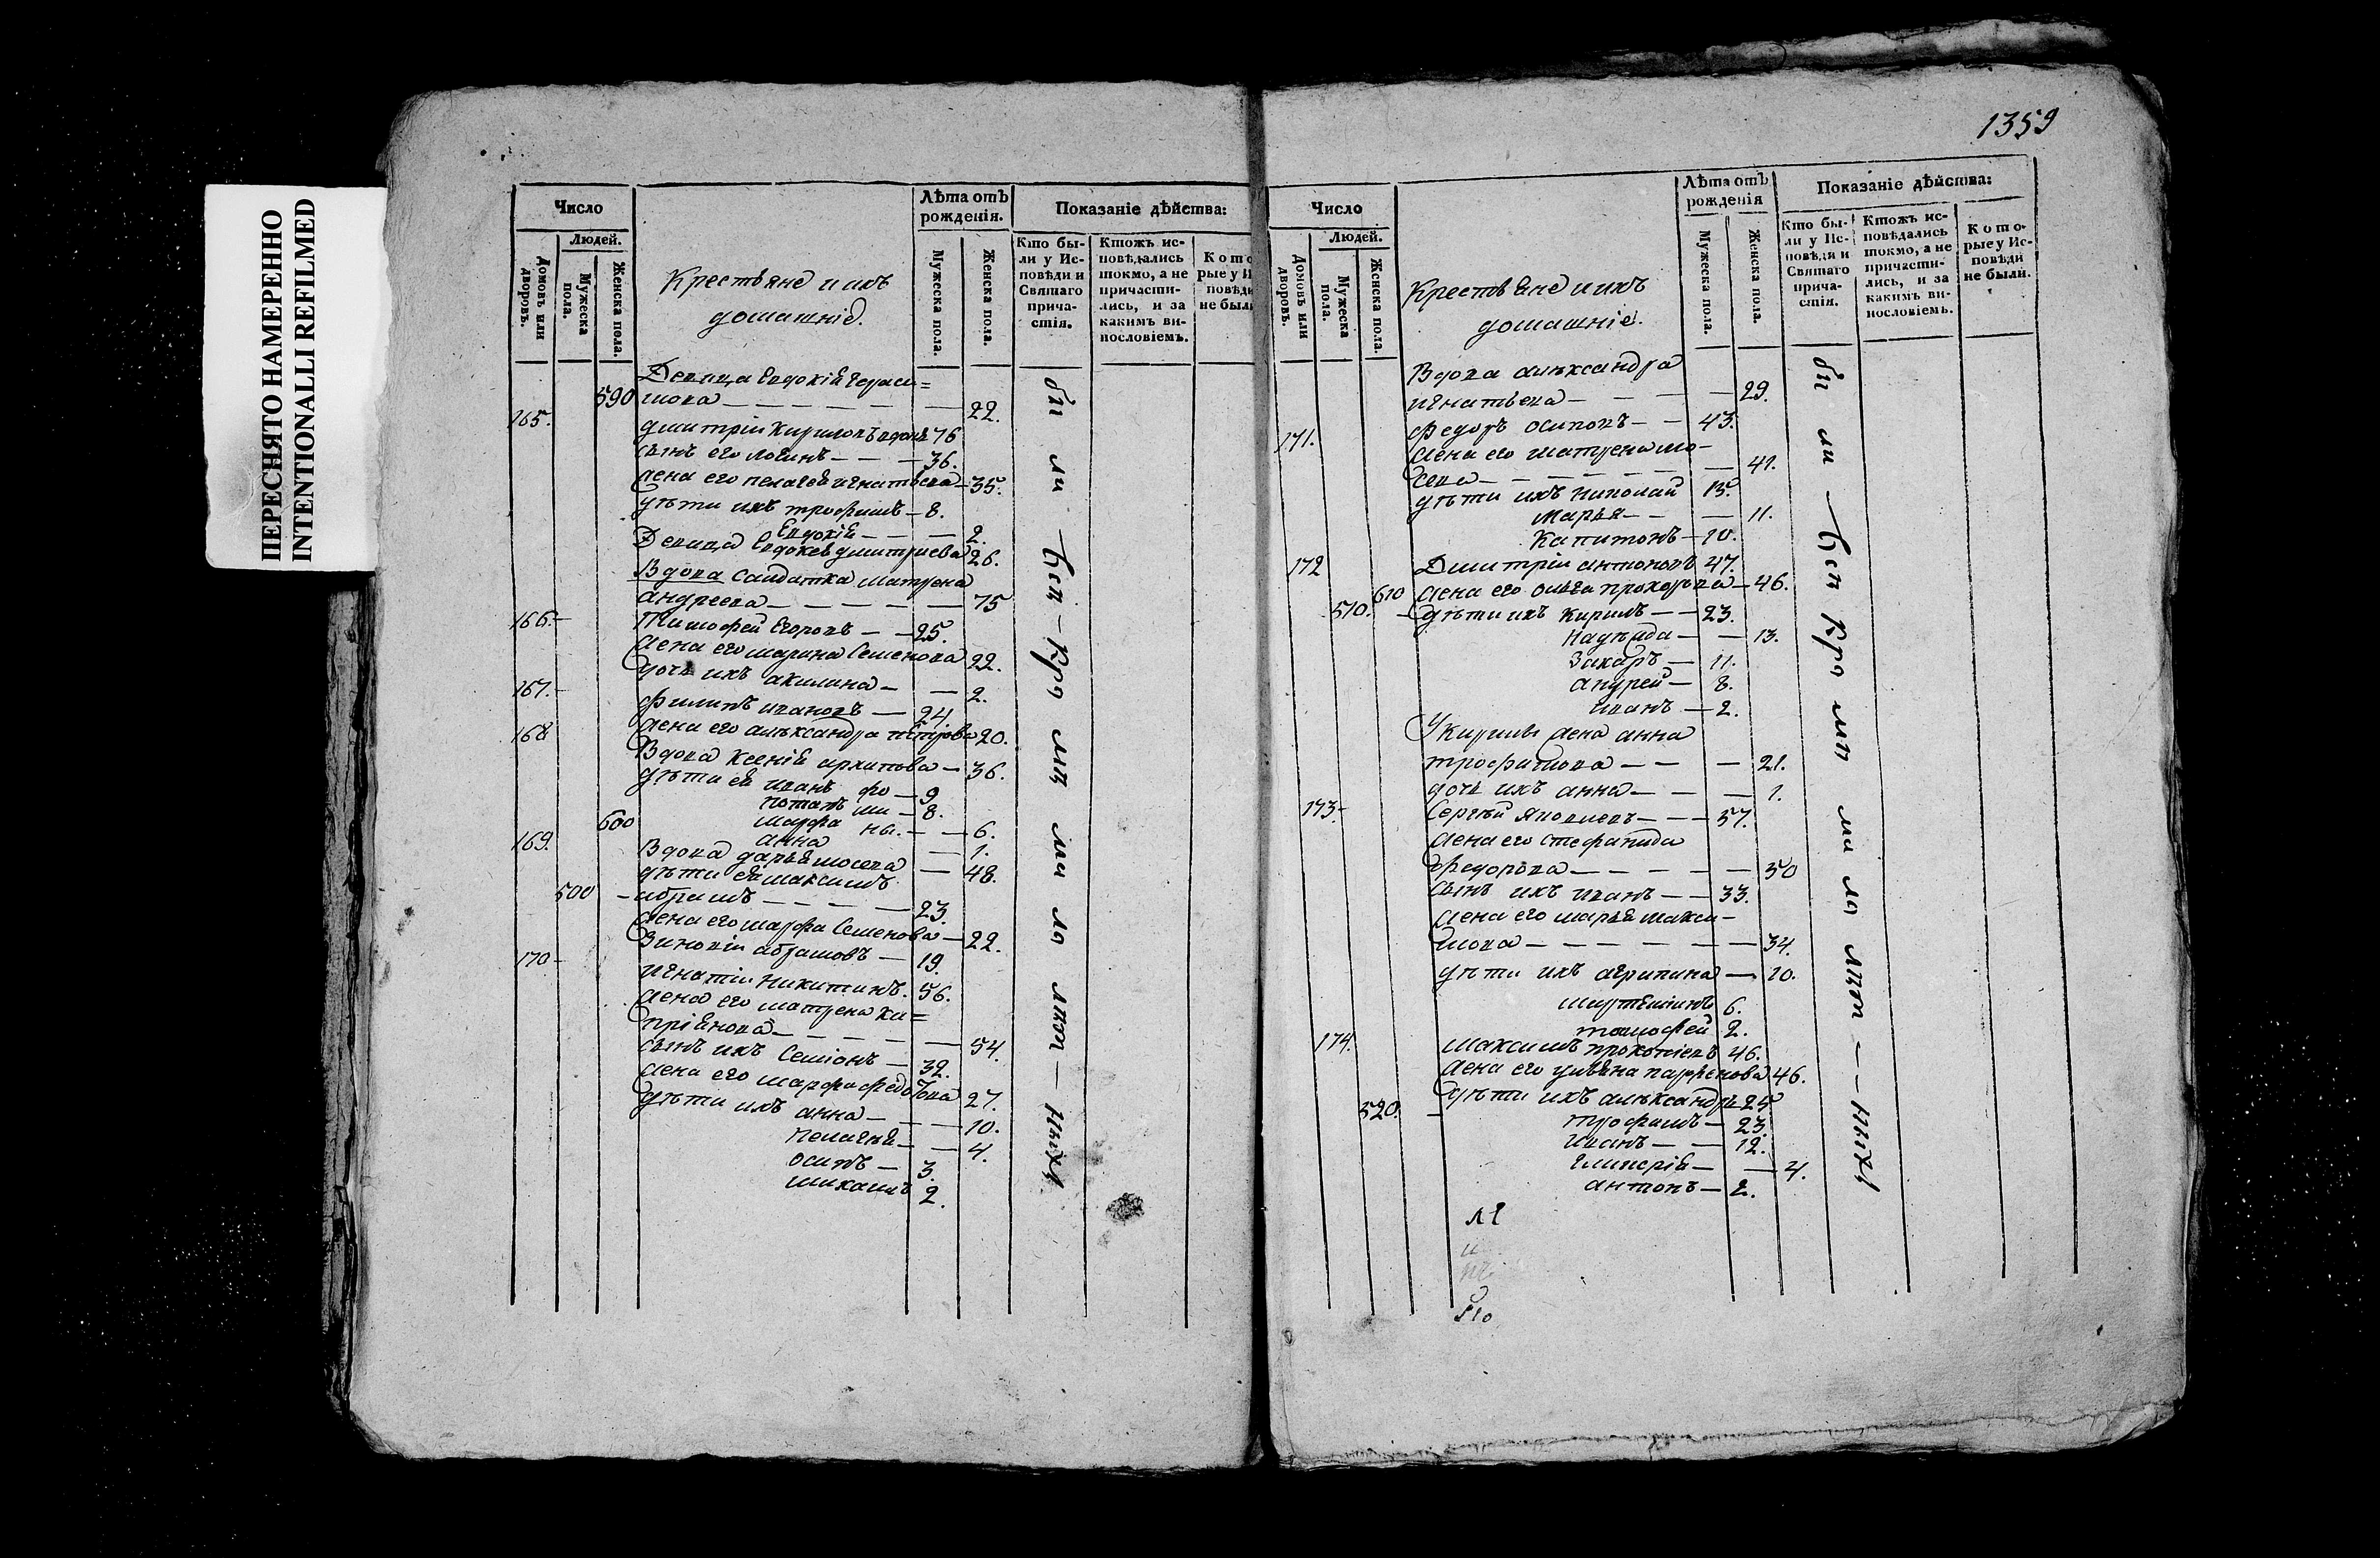 ПЕРЕСНЯТО НАМЕРЕННО
INTENTIONALLI REFILMED
Число
Людей.
Домовъ или дворовъ.
Мужеска пола.
Женска пола.
Крестьяне и ихъ
домашніе.
Лѣта отъ
рожденія.
Мужеска пола.
Женска пола.
Показаніе дѣйства:
Кто бы-
ли у Ис-
повѣди и
Святаго
прича-
стія.
Ктожъ ис-
повѣдались
токмо, а не
причасти-
лись, и за
какимъ ви-
нословіемъ.
Девица Евдокія Гераси=
590 мова — 22.
165. Дмитрій Кириловъ вдовъ 76
сынъ его Логинъ — 36.
Жена его Пелагея Игнатьева — 35.
дѣти ихъ Трофимъ — 8.
Евдокія — 2.
Девица Евдокея Дмитриева 26.
Вдова Салдатка Матрена
Андреева — 75
166. Тимофей Егоровъ — 25.
Жена его Марина Семенова 22.
дочь ихъ Акилина — 2.
167. Филипъ Ивановъ — 24.
Жена его Александра Петрова 20.
168 Вдова Ксенія Архипова — 36.
дѣти ея Иванъ фо — 9
Потапъ ми — 8.
600 Марфа ны. — 6.
Анна — 1.
169. Вдова Дарья Мосева — 48.
дѣти ея Максимъ
500 Абрамъ — 23.
Жена его Марфа Семенова — 22.
Зиновій Абрамовъ — 19.
170. Игнатій Никитинъ. 56.
Жена его Матрена Ки=
пріянова — 54.
сынъ ихъ Семіонъ — 32.
Жена его Марфа Федотова 27.
дѣти ихъ Анна — 10.
Пелагея — 4.
Осипъ — 3.
Михаилъ 2.
1359
Число
Людей.
Домовъ или дворовъ.
Мужеска пола.
Женска пола.
Крестьяне и ихъ
домашніе.
Лѣта отъ
рожденія
Мужеска пола.
Женска пола.
Показаніе дѣйства:
Кто бы-
ли у Ис-
повѣди и
Святаго
прича-
стія.
Ктожъ ис-
повѣдались
токмо, а не
причасти-
лись, и за
какимъ ви-
нословіемъ.
Кото-
рые у Ис-
повѣди
не были.
Вдова Александра
Игнатьева — 29.
171. Федоръ Осиповъ — 43.
Жена его Матрена Мо-
сева — 41.
дѣти ихъ Николай 13.
Марья — 11.
Капитонъ — 10.
172 Дмитрій Антоновъ 47.
610 Жена его Ольга Прохорова — 46.
510. дѣти ихъ Кирилъ — 23.
Надежда — 13.
Захаръ — 11.
Андрей — 8.
Иванъ — 2.
У Кирилы жена Анна
Трофимова — 21.
дочь ихъ Анна — 1.
173. Сергѣй Яковлевъ — 57.
Жена его Стефанида
Федорова — 50
сынъ ихъ Иванъ — 33.
Жена его Марья Макси-
мова — 34.
дѣти ихъ Агрипина — 10.
6.
Тимофей 2.
174. Максимъ Прокопіевъ 46.
Жена его Ульяна Парфенова 46.
520. дѣти ихъ Александръ 25
Трофимъ — 23
Иванъ — 12.
Гликерія — 4.
Антонъ — 2.